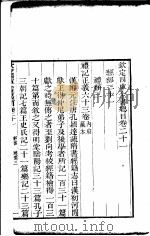 欽定四庫全書總目卷二十一
經部二十一
禮類三
禮記正義六十三卷 內府藏本
漢鄭元注唐孔穎達疏隋書經籍志曰漢初河間
獻王得仲尼弟子及後學者所記一百三十一篇
獻之時無傳之者至劉向考校經籍檢得一百三
十篇第而敘之又得明堂陰陽記三十三篇孔子
三朝記七篇王史氏記二十一篇樂記二十三篇